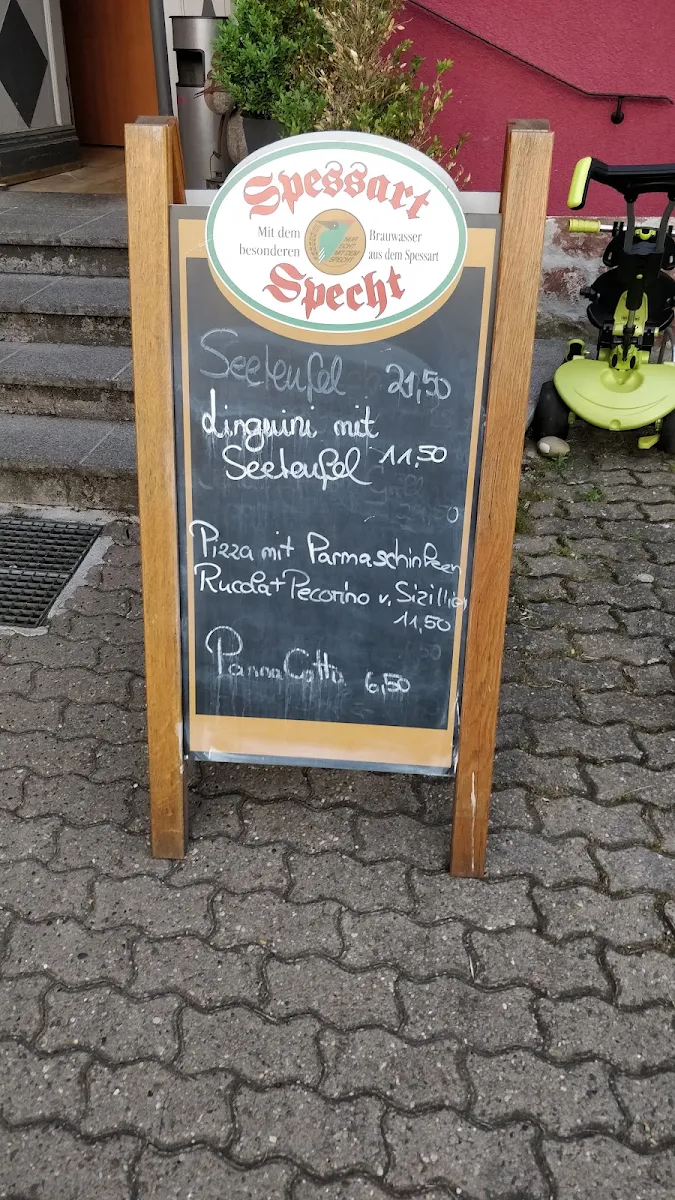 Spessart
Mit dem Brauwasser
besonderen aus dem Spessart
NUR
ECHT
MIT DEM
SPECHT
Specht
Seeteufel 21,50
Linguini mit
Seeteufel 11,50
Pizza mit Parmaschinken
Rucola + Pecorino v. Sizilien
11,50
Panna Cotta 6,50